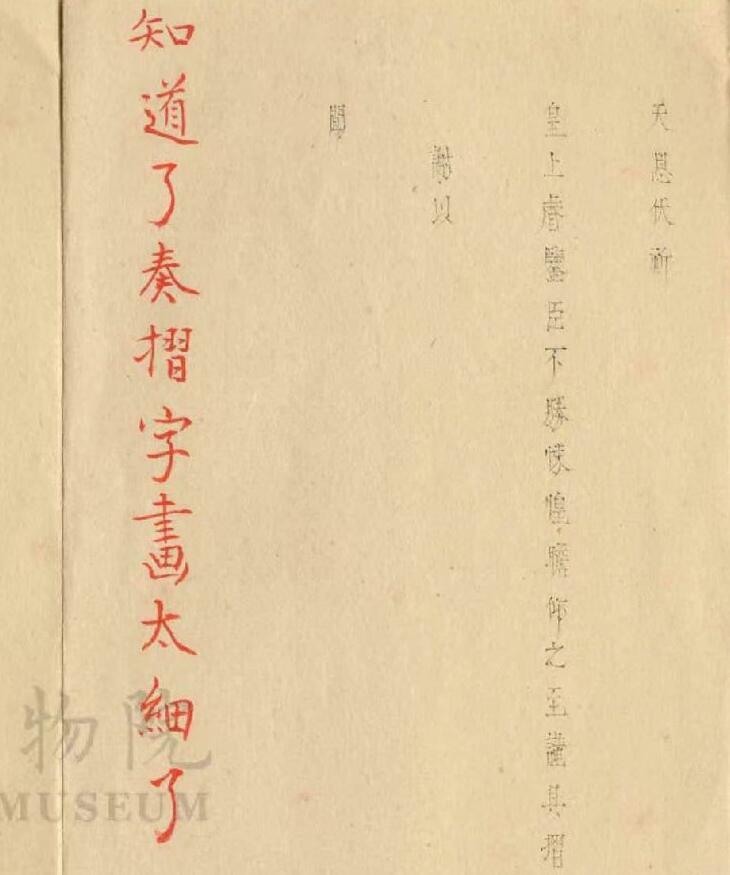 天恩伏祈
皇上睿鑒臣不勝悚惶瞻仰之至謹具摺
謝以
聞
知道了奏摺字畫太細了
物院
MUSEUM